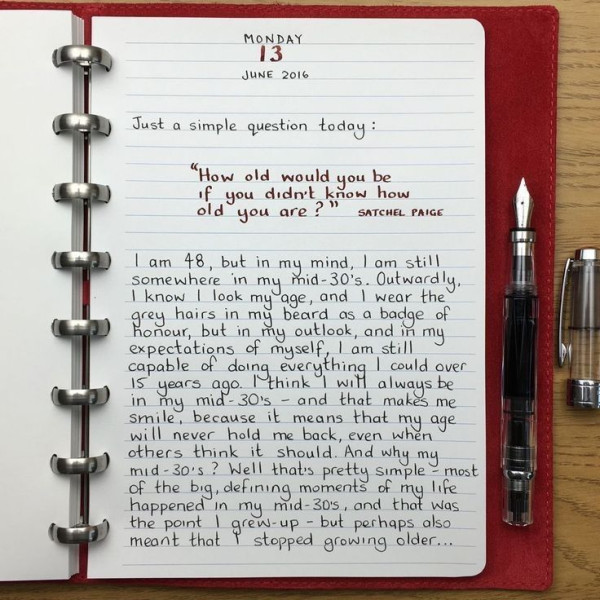 MONDAY
13
JUNE 2016
Just a simple question today:
"How old would you be
if you didn't know how
old you are?" SATCHEL PAIGE
I am 48, but in my mind, I am still
somewhere in my mid-30's. Outwardly,
I know I look my age, and I wear the
grey hairs in my beard as a badge of
honour, but in my outlook, and in my
expectations of myself, I am still
capable of doing everything I could over
15 years ago. I think I will always be
in my mid-30's - and that makes me
smile, because it means that my age
will never hold me back, even when
others think it should. And why my
mid-30's? Well that's pretty simple - most
of the big, defining moments of my life
happened in my mid-30's, and that was
the point I grew-up - but perhaps also
meant that I stopped growing older...